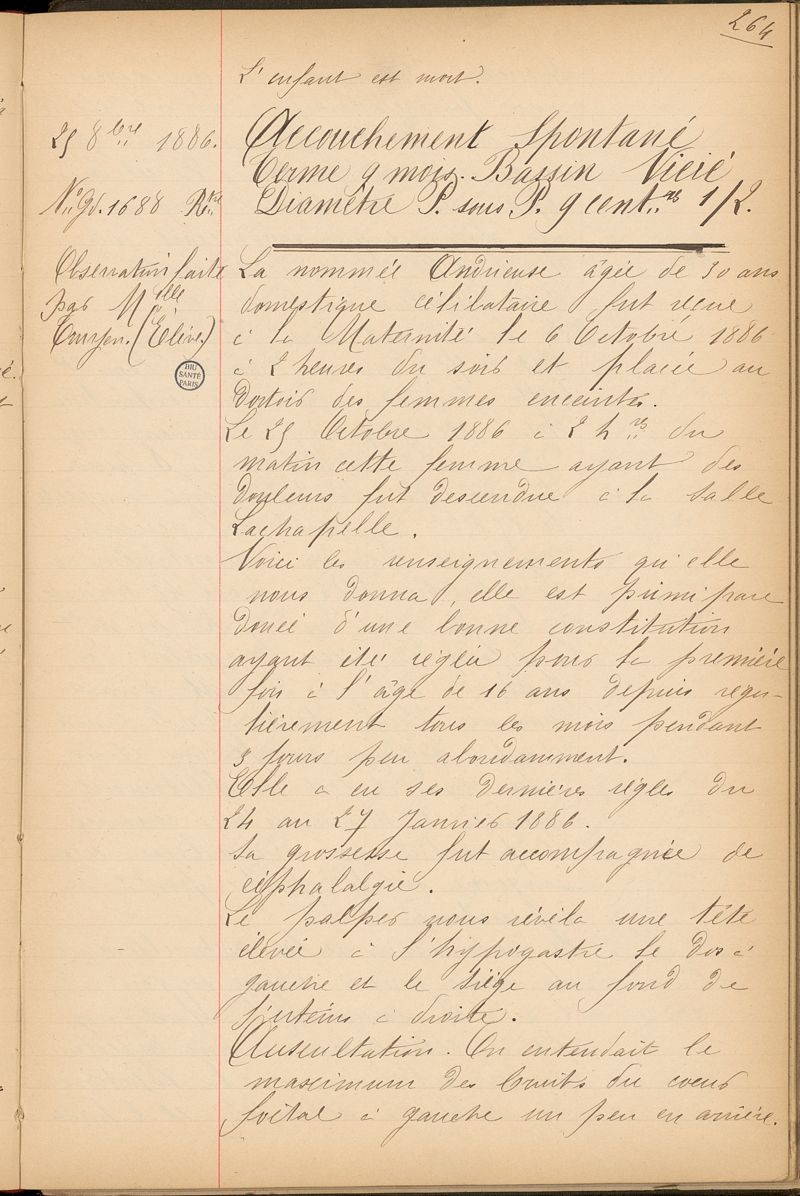 264
L'enfant est mort.
25 8bre 1886.
Accouchement Spontané
Terme 9 mois. Bassin Vicié
Diamètre P. sous P. 9 cent.res 1/2.
No gd. 1688
Observation faite
par Melle
(Elève.)
BIU
SANTÉ
PARIS
La nommée Andrieuse âgée de 30 ans
domestique célibataire fut reçue
à la Maternité le 6 Octobre 1886
à 2 heures du soir et placée au
dortoir des femmes enceintes.
Le 25 Octobre 1886 à 2 hres du
matin cette femme ayant des
douleurs fut descendue à la salle
Lachapelle.
Voici les renseignements qu'elle
nous donna, elle est primipare
douée d'une bonne constitution
ayant été réglée pour la première
fois à l'âge de 16 ans depuis régu-
lièrement tous les mois pendant
3 jours peu abondamment.
Elle a eu ses dernières règles du
24 au 27 Janvier 1886.
Sa grossesse fut accompagnée de
céphalalgie.
Le palper nous révéla une tête
élevée à l'hypogastre le dos à
gauche et le siège au fond de
l'utérus à droite.
Auscultation. On entendait le
maximum des bruits du cœur
foetal à gauche un peu en arrière.